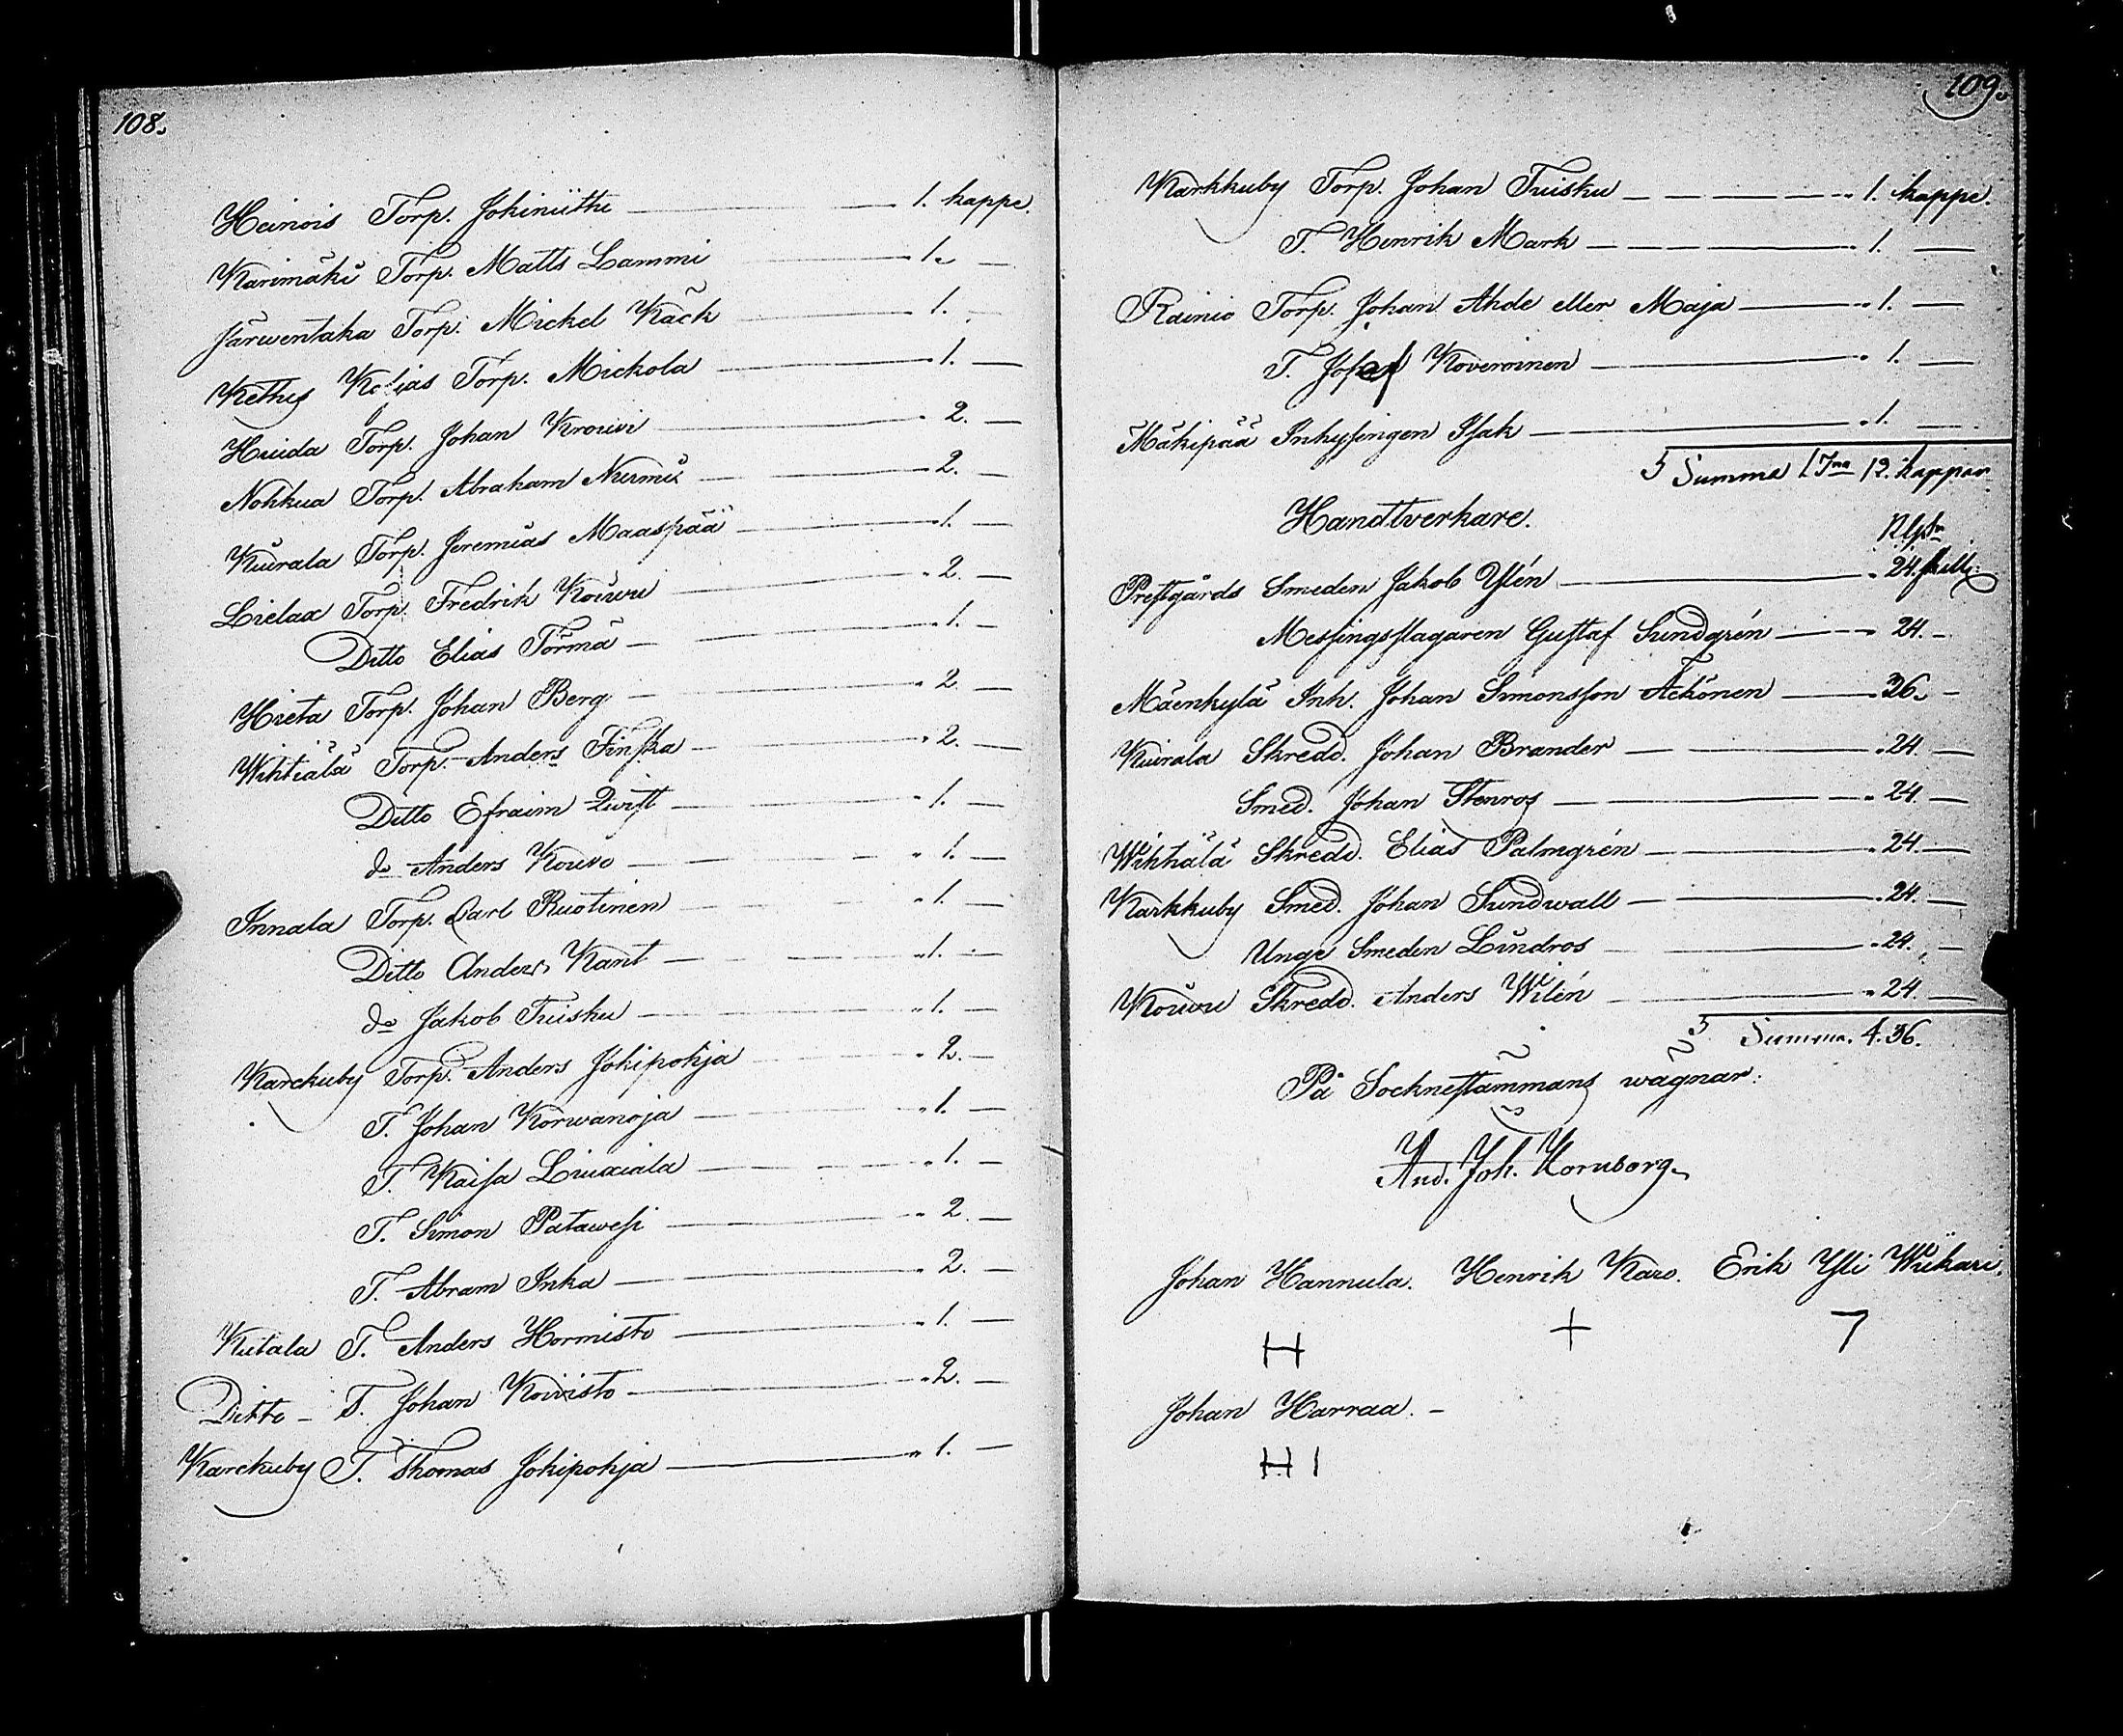 108.
Heinois Torp. Jokiniithe — 1. kappe.
Karimäki Torp. Matts Lammi — 1. —
Järwentaka Torp. Mickel Käck — 1. —
Kethy Torp. Mickola — 1. —
Huida Torp. Johan Krouvi — 2. —
Nohkua Torp. Abraham Nurmi — 2. —
Kuirala Torp. Jeremias Maaspää — 1. —
Lielax Torp. Fredrik Kouvu — 2. —
Ditto Elias Törmä — 1. —
Hieta Torp. Johan Berg — 2. —
Wihtiälä Torp. Anders Finska — 2. —
Ditto Efraim Qwist — 1. —
do Anders Kouvo — 1. —
Innala Torp. Carl Ruotinen — 1. —
Ditto Anders Kant — 1. —
do Jakob Tuisku — 1. —
Karckuby Torp. Anders Jokipohja — 2. —
T. Johan Korwanoja — 1. —
T. Kaisa Liuxiala — 1. —
T. Simon Patawesi — 2. —
T. Abram Inka — 2. —
Kutala T. Anders Hormisto — 1. —
Ditto — T. Johan Koivisto — 2. —
Karckuby T. Thomas Jokipohja — 1. —
109.
Karkkuby Torp. Johan Tuisku — 1. kappe.
T. Henrik Mark — 1. —
Rainio Torp. Johan Ahde eller Maja — 1. —
T. Josef Koveroinen — 1. —
Mäkipää Inhysingen Isak — 1. —
Summa 1 Tna 12. kappar
Handtverkare.
Prestgårds Smeden Jakob Ylén — 24. skill.
Messingsslagaren Gustaf Sundgrén — 24. —
Mäenkylä Inh. Johan Simonsson Äckönen — 36. —
Kuirala Skredd. Johan Brander — 24. —
Smed. Johan Stenros — 24. —
Wihtiälä Skredd. Elias Palmgrén — 24. —
Karkkuby Smed. Johan Sundwall — 24. —
Unge Smeden Lundros — 24. —
Kouvu Skredd. Anders Wilén — 24. —
Summa. 4. 36.
På Sockнestämmans wägnar:
And. Joh. Hornborg.
Johan Hannula. Henrik Karo. Erik Yli Wiikari.
H + 7
Johan Harraa. —
H I